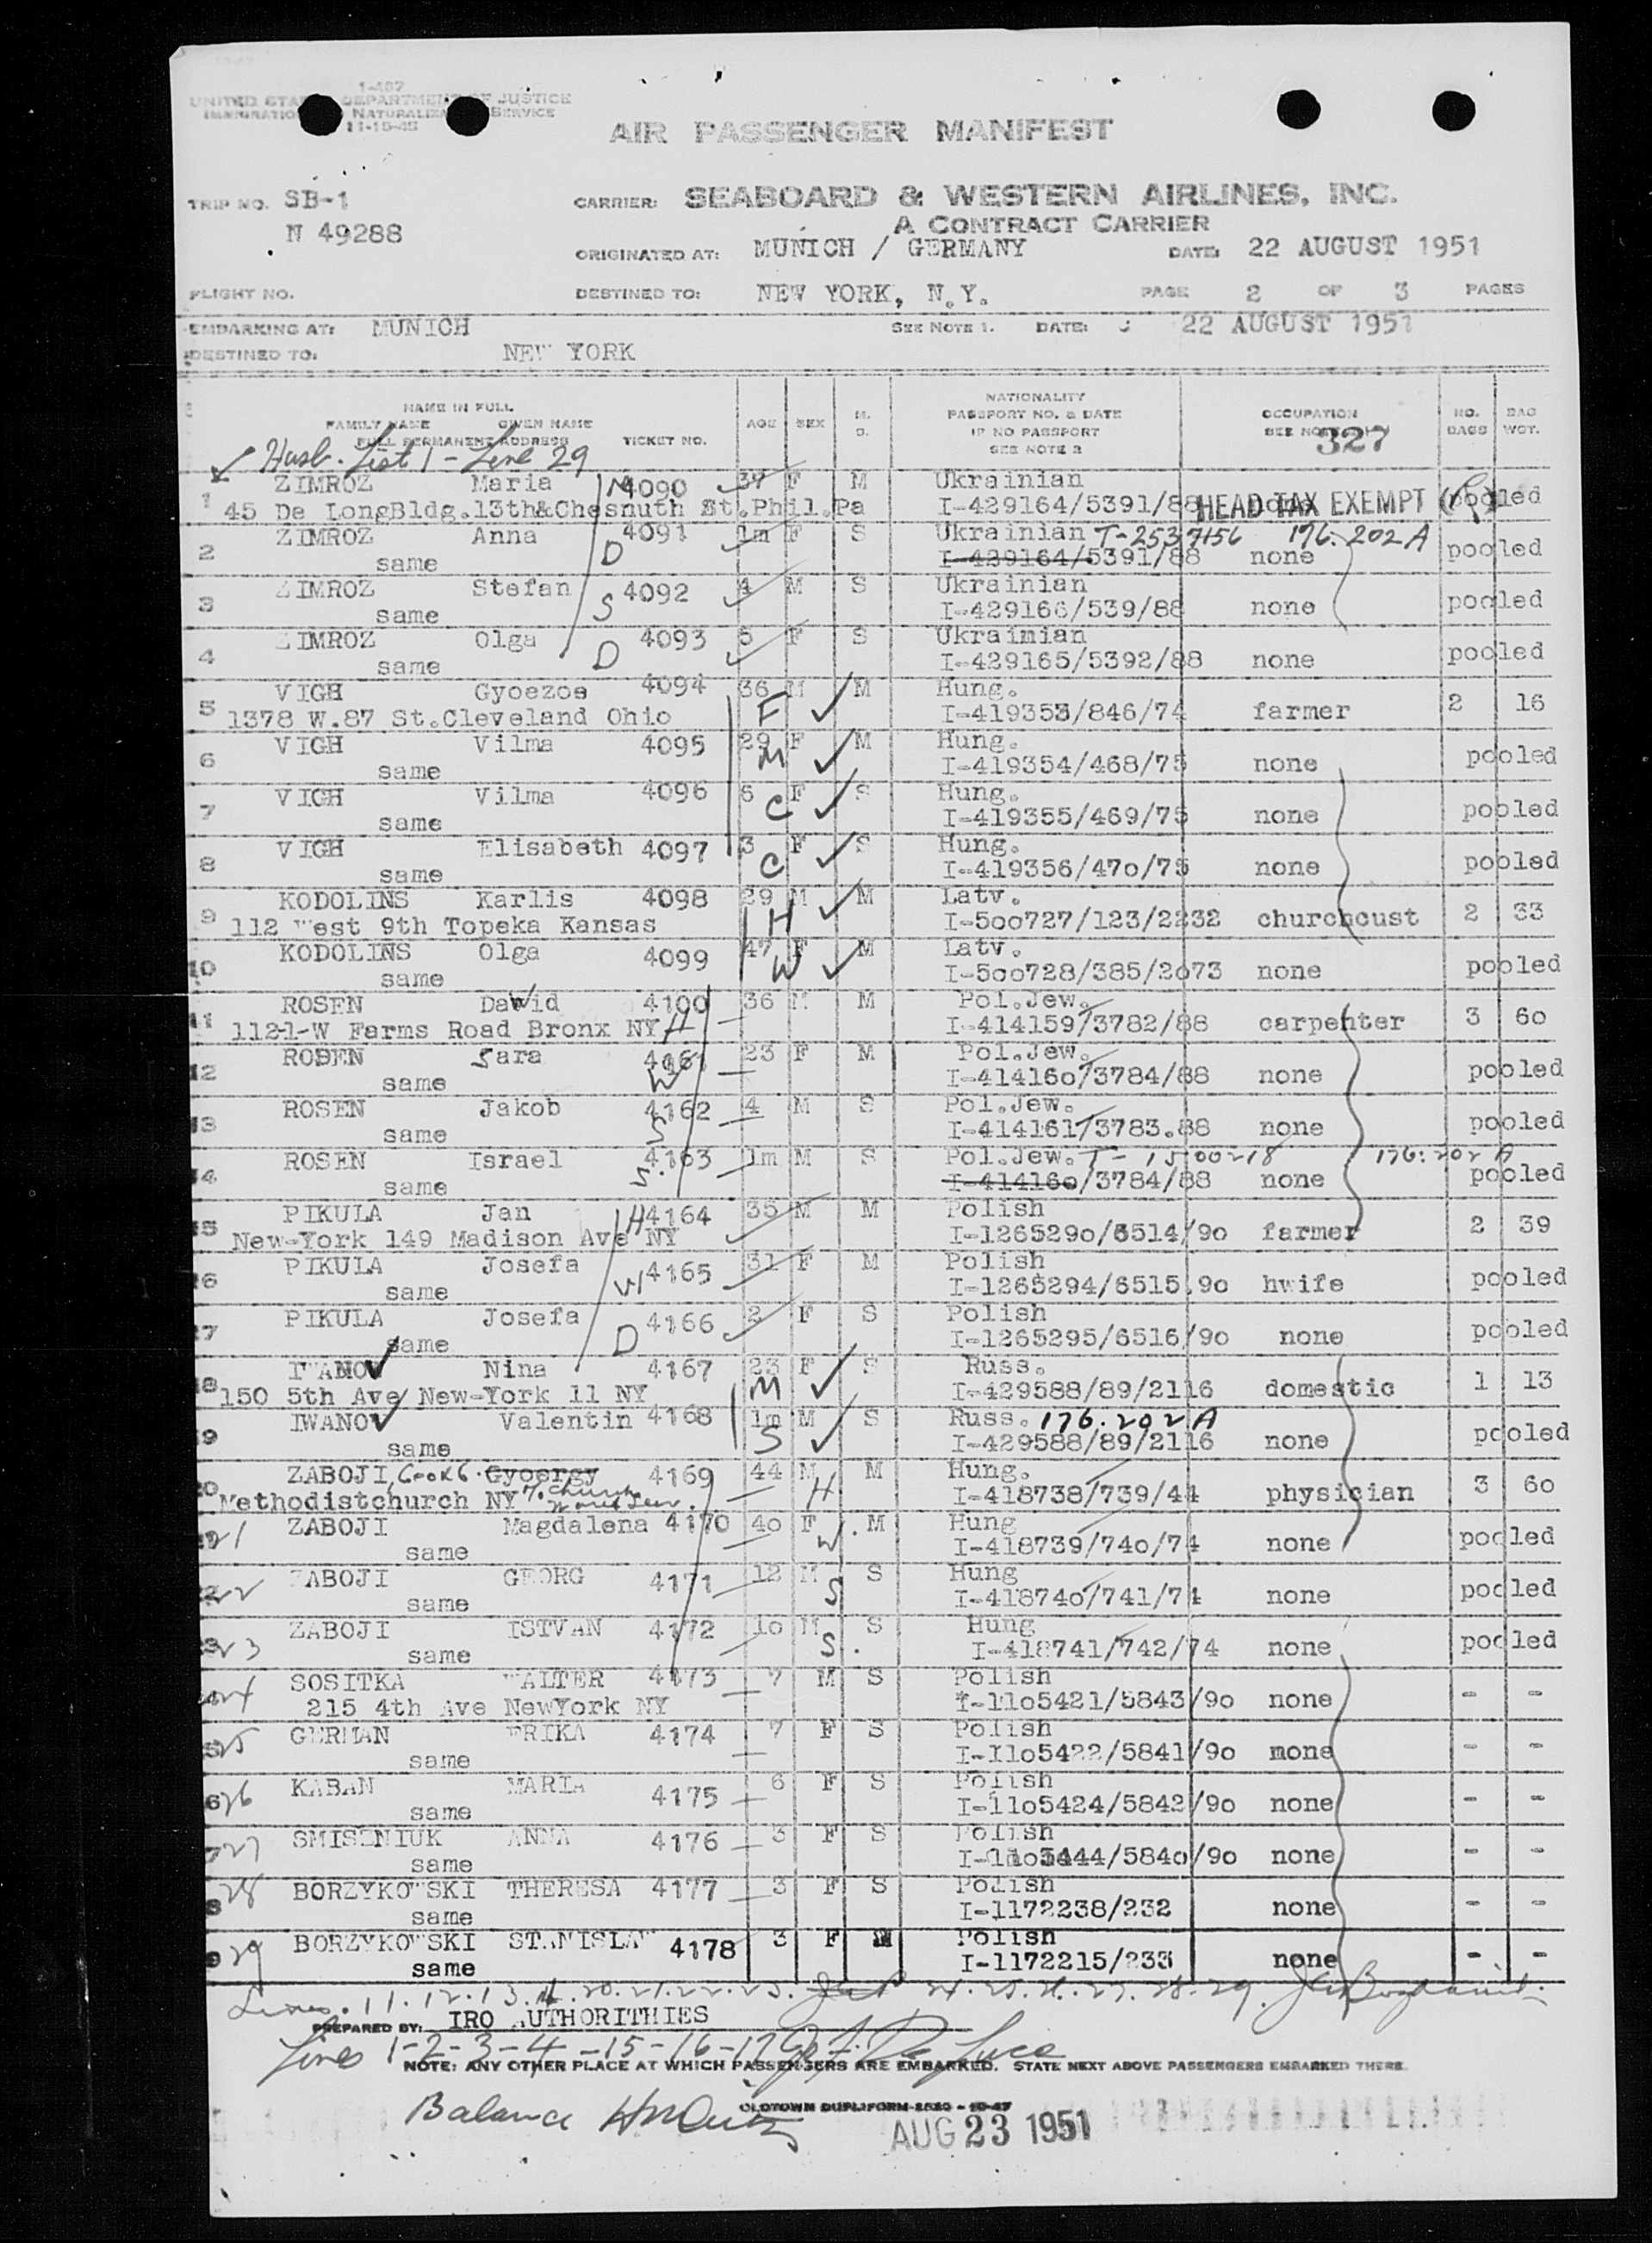 1-487
UNITED STATES DEPARTMENT OF JUSTICE
IMMIGRATION NATURALIZATION SERVICE
11-15-45
AIR PASSENGER MANIFEST
TRIP NO. SB-1
N 49288
CARRIER: SEABOARD & WESTERN AIRLINES, INC.
A CONTRACT CARRIER
ORIGINATED AT: MUNICH / GERMANY DATE: 22 AUGUST 1951
FLIGHT NO. DESTINED TO: NEW YORK, N.Y. PAGE 2 OF 3 PAGES
EMBARKING AT: MUNICH SEE NOTE 1. DATE: 22 AUGUST 1951
DESTINED TO: NEW YORK
NAME IN FULL
FAMILY NAME GIVEN NAME
FULL PERMANENT ADDRESS TICKET NO. AGE SEX M. S. NATIONALITY PASSPORT NO. & DATE IF NO PASSPORT SEE NOTE 2 OCCUPATION SEE NOTE NO. BAGS BAG WGT.
327
Husb. List 1 - Line 29
1 ZIMROZ Maria M 4090 37 F M Ukrainian
45 De LongBldg.13th&Chesnuth St.Phil.Pa I-429164/5391/88 HEAD TAX EXEMPT pooled
2 ZIMROZ Anna 4091 1m F S Ukrainian T-2537156 176.202A
same D I-429164/5391/88 none pooled
3 ZIMROZ Stefan 4092 4 M S Ukrainian
same S I-429166/539/88 none pooled
4 ZIMROZ Olga 4093 5 F S Ukrainian
same D I-429165/5392/88 none pooled
5 VIGH Gyoezoe 4094 36 M M Hung.
1378 W.87 St.Cleveland Ohio F I-419353/846/74 farmer 2 16
6 VIGH Vilma 4095 29 F M Hung.
same M I-419354/468/75 none pooled
7 VIGH Vilma 4096 5 F S Hung.
same C I-419355/469/75 none pooled
8 VIGH Elisabeth 4097 3 F S Hung.
same C I-419356/470/75 none pooled
9 KODOLINS Karlis 4098 29 M M Latv.
112 West 9th Topeka Kansas H I-500727/123/2232 churchcust 2 33
10 KODOLINS Olga 4099 47 F M Latv.
same W I-500728/385/2073 none pooled
11 ROSEN Dawid 4100 36 M M Pol.Jew.
1121-W Farms Road Bronx NY H I-414159/3782/88 carpenter 3 60
12 ROSEN Sara 4161 23 F M Pol.Jew.
same W I-414160/3784/88 none pooled
13 ROSEN Jakob 4162 4 M S Pol.Jew.
same S I-414161/3783.88 none pooled
14 ROSEN Israel 4163 1m M S Pol.Jew. T-1500218 176.202 A
same S. I-414160/3784/88 none pooled
15 PIKULA Jan H 4164 35 M M Polish
New-York 149 Madison Ave NY I-1265290/6514/90 farmer 2 39
16 PIKULA Josefa 4165 31 F M Polish
same W I-1265294/6515.90 hwife pooled
17 PIKULA Josefa 4166 2 F S Polish
same D I-1265295/6516/90 none pooled
18 IWANOV Nina 4167 23 F S Russ.
150 5th Ave New-York 11 NY M I-429588/89/2116 domestic 1 13
19 IWANOV Valentin 4168 1m M S Russ. 176.202A
same S I-429588/89/2116 none pooled
20 ZABOJI, Georg Gyoergy 4169 44 M M Hung.
Methodistchurch NY H I-418738/739/44 physician 3 60
21 ZABOJI Magdalena 4170 40 F M Hung
same W I-418739/740/74 none pooled
22 ZABOJI GEORG 4171 12 M S Hung
same S I-418740/741/74 none pooled
23 ZABOJI ISTVAN 4172 10 M S Hung
same S. I-418741/742/74 none pooled
24 SOSITKA WALTER 4173 7 M S Polish
215 4th Ave NewYork NY I-1105421/5843/90 none - -
25 GERMAN ERIKA 4174 7 F S Polish
same I-1105422/5841/90 mone - -
26 KABAN MARIA 4175 6 F S Polish
same I-1105424/5842/90 none - -
27 SMISENIUK ANNA 4176 3 F S Polish
same /5840/90 none - -
28 BORZYKOWSKI THERESA 4177 3 F S Polish
same I-1172238/232 none - -
29 BORZYKOWSKI STANISLAW 4178 3 F Polish
same I-1172215/233 none - -
Lines. 11.12.13.14.20.21.22.23. 24.25.26.27.28.29.
PREPARED BY: IRO AUTHORITHIES
Lines 1-2-3-4-15-16-17
NOTE: ANY OTHER PLACE AT WHICH PASSENGERS ARE EMBARKED. STATE NEXT ABOVE PASSENGERS EMBARKED THERE.
OLDTOWN DUPLIFORM-2520-10-47
Balance
AUG 23 1951